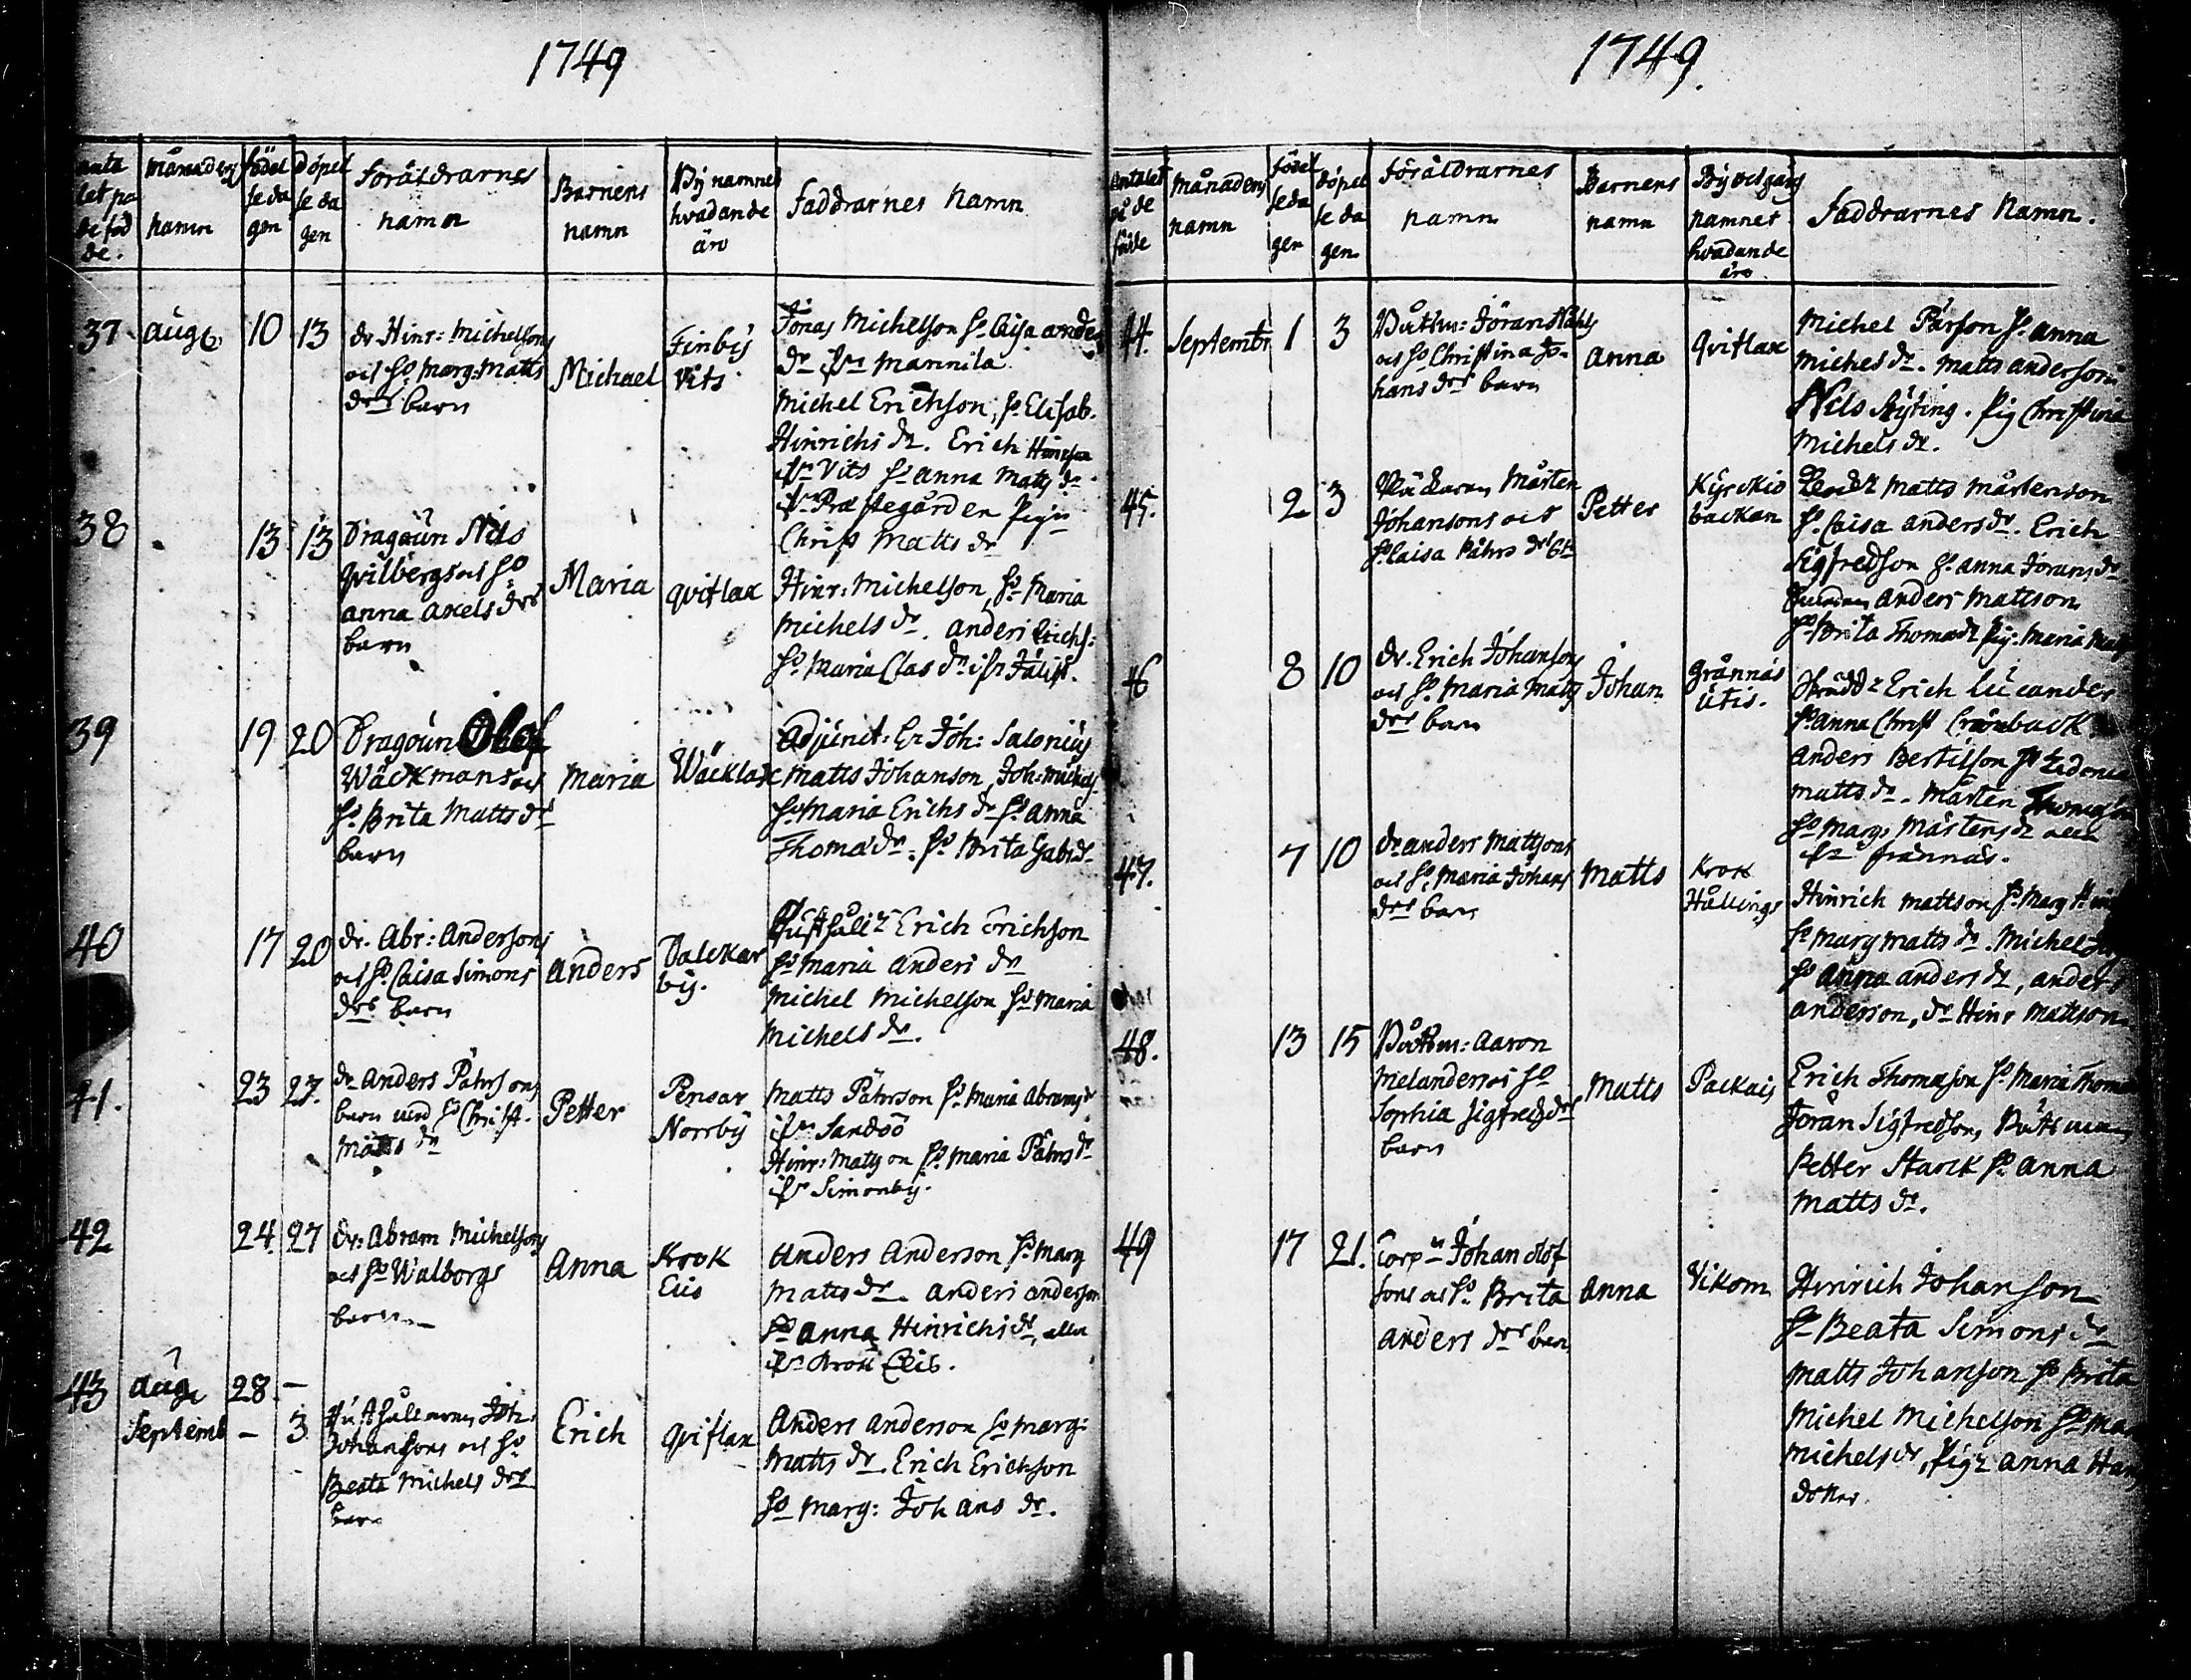 1749
antalet på de föd de.
månadens namn
födel se da gen
döpel se da gen
Föräldrarnes namn
Barnens namn
Bÿ namnet hvadande äro
Faddrarnes Namn
37 aug 10 13
dr Hinr: Michelsons
och H: Marg: Matts
drs barn
Michael
Finbÿ
Vits
Jönas Michelson H. Caisa anders
dr fr Mannila
Michel Erichson, H. Elisab.
Hinrichs dr. Erich
fr Vits H anna Matts dr
fr Præstegården Pig
Christ Matts dr
38 13 13
Dragoun Nils
qvilbergs och H
anna axels drs
barn
Maria
qviflax
Hinr: Michelson, H Maria
Michels dr. anders Erichs:
H Maria Clas dr
39 19 20
Dragoun Olof
Wäckmans och
H. Brita Matts drs
barn
Maria
Wäcklax
Adjunct: Hr Joh: Salonius
Matts Johanson, Joh: Michels
H Maria Erichs dr H anna
Thomæ dr. H Brita Gabr dr
40 17 20
dr. Abr: Andersons
och H: Caisa Simons
drs barn
anders
Dalckar
bÿ.
Erich Erichson
H Maria anders dr
Michel Michelson H Maria
Michels dr.
41. 23 27.
dr anders Påhrsons
barn med H Christ.
Matts dr
Petter
Pensar
Norrbÿ
Matts Påhrson H Maria Abrams dr
fr Sandöö
Hinr: Matson H Maria Påhrs dr
fr Simonbÿ.
42 24. 27
dr: Abram Michelsons
och H Walborgs
barn
Anna
Krok
Eiis
Anders Anderson H Marg
Matts dr. anders anderson
H anna Hinrichs dr, alla
fr Krok Eiis.
43 aug 28 –
Septemb – 3
Joh:
Johansons och H
Beata Michels drs
barn
Erich
qviflax
Anders anderson H marg:
Matts dr Erich Erichson
H marg: Johans dr.
1749.
Antalet på de födde
månadens namn
födel se da gen
döpel se da gen
Föräldrarnes namn
Barnens namn
namnet hvadande äro
Faddrarnes Namn.
44. Septembr 1 3
Båtsm: Jöran Ståhls
och H Christina Jo-
hans drs barn
Anna
qviflax
Michel Pärson H. anna
Michels dr. Matts anderson
Nils Pig Christina
Michels dr.
45. 2 3
Mårten
Johansons och
H Caisa Påhrs drs
Petter
Kÿrckio
backan
Matts Mårtenson
H. Caisa anders dr. Erich
Sigfredson H. anna Jörans dr
anders Mattson
H Brita Thomæ dr Pig: Maria
46 8 10
dr. Erich Johansons
och H Maria Matts
drs barn
Johan
Grännäs
Utis.
Erich Lucander
H anna Christ
Anders Bertilson H
Matts dr. Mårten
H Marg: Mårtens dr alla
fr Grännäs.
47. 7 10
dr anders Mattsons
och H. Maria Johans
drs barn
Matts
Krok
Hållings
Hinrich Mattson H Marg
H Marg Matts dr. Michel
H Anna anders dr, anders
anderson, dr Hinr Mattson.
48. 13 15
Båtsm: Aaron
Melanders och H
Sophia Sigfreds drs
barn
Matts
Packais
Erich Thomæson H Maria
Jöran Sigfredson, Båtsman
Petter Starck H anna
Matts dr.
49 17 21.
Corp Johan Olof
sons och H. Brita
anders drs barn
Anna
Vikom
Hinrich Johanson
H Beata Simons dr
Matts Johanson H Brita
Michel Michelson H
Michels dr, Pig anna